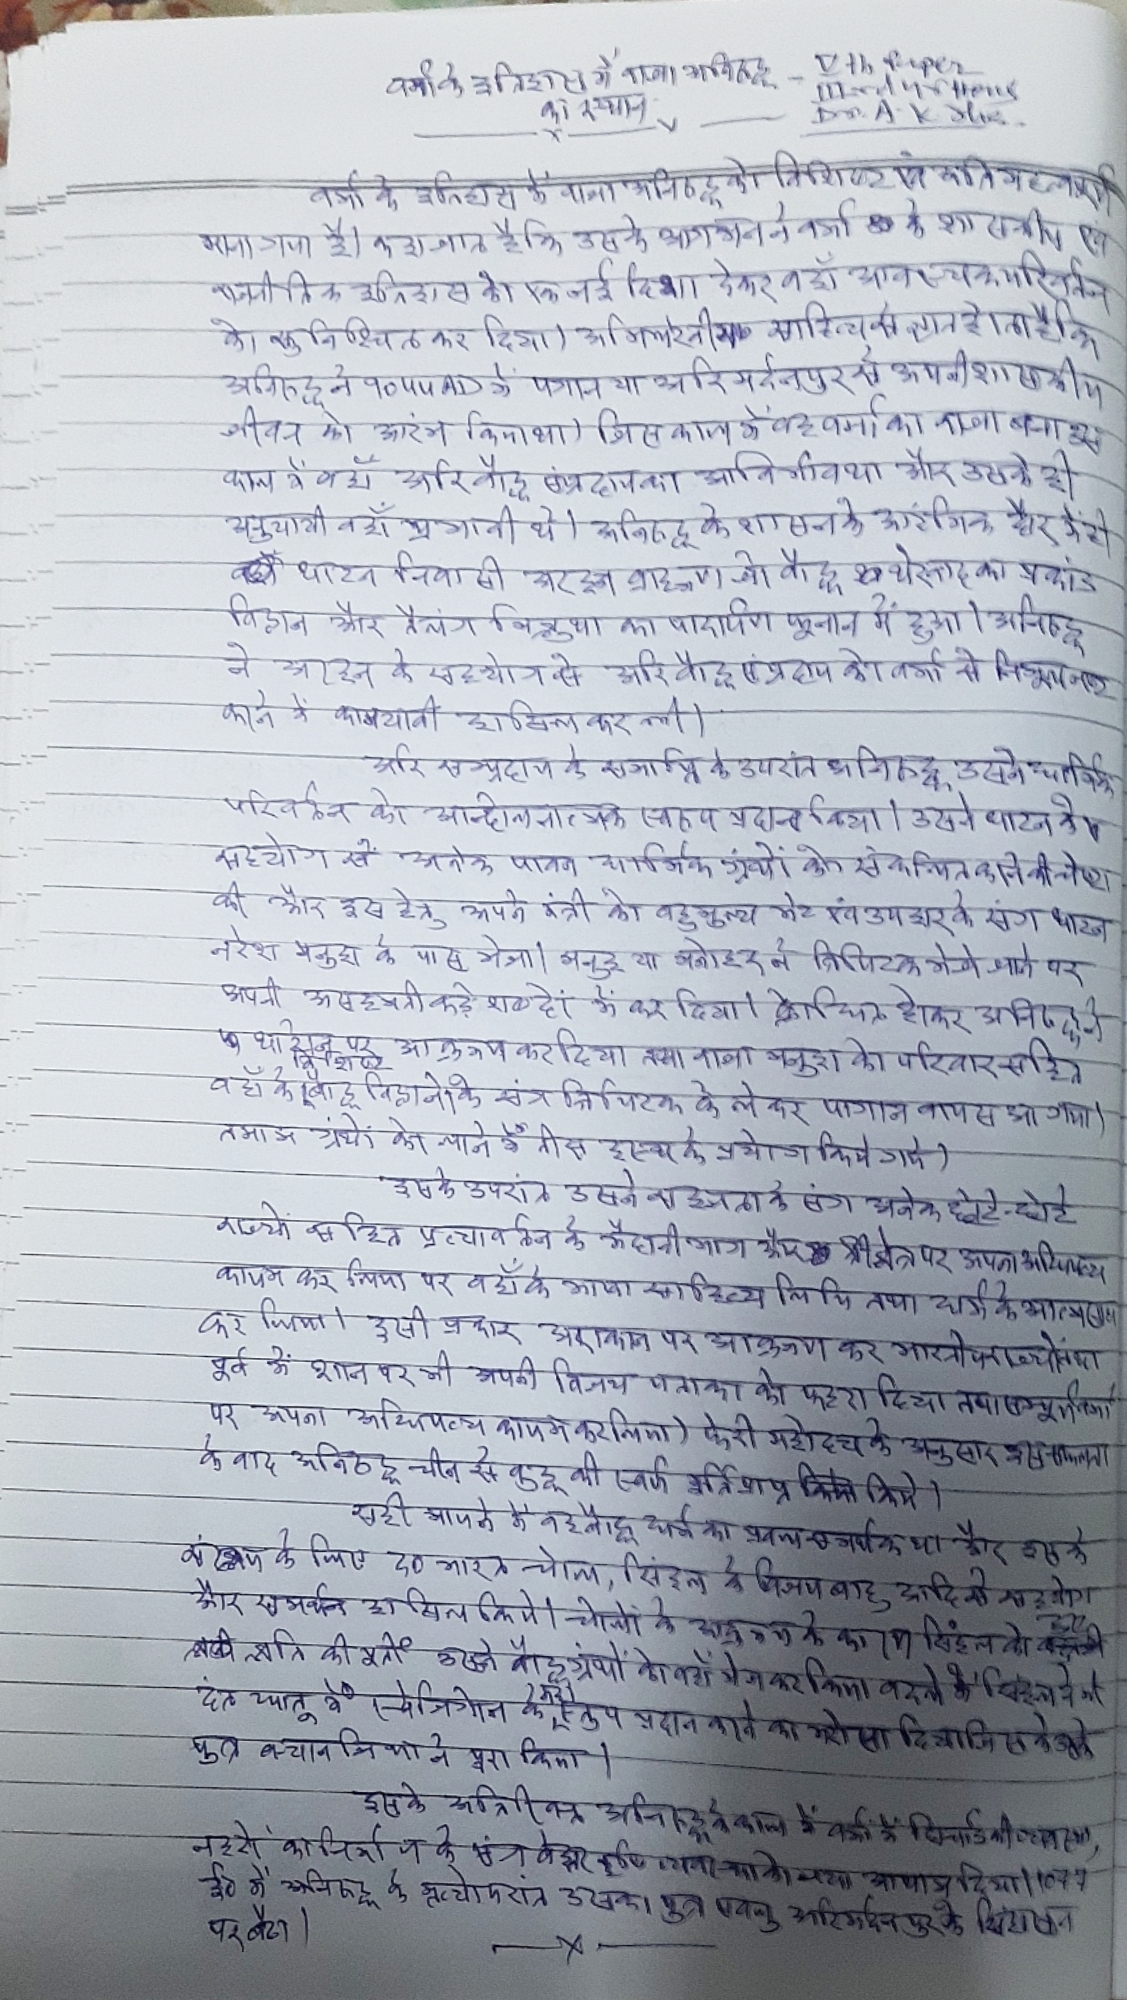 वर्मा के इतिहास में राजा अनिरुद्ध - Vth Paper
का स्थान
Dr. A. K.
वर्मा के इतिहास में राजा अनिरुद्ध को विशिष्ट एवं अति महत्वपूर्ण
माना गया है। कहा जाता है कि उसके आगमन ने वर्मा के शासकीय एवं
राजनीतिक इतिहास को एक नई दिशा देकर वहाँ आवश्यक परिवर्तन
को सुनिश्चित कर दिया। साहित्य से ज्ञात होता है कि
अनिरुद्ध ने 1044 AD में पगान या अरिमर्दनपुर से अपनी शासकीय
जीवन को आरंभ किया था। जिस काल में वह वर्मा का राजा बना उस
काल में वहाँ अरि बौद्ध संप्रदाय का आविर्भाव था और उसके ही
अनुयायी वहाँ प्रभावी थे। अनिरुद्ध के शासन के आरंभिक दौर में ही
थाटन निवासी अरहन ब्राह्मण जो बौद्ध थेरवाद का प्रकांड
विद्वान और तैलंग भिक्षु था का पादार्पण पूगान में हुआ। अनिरुद्ध
ने अरहन के सहयोग से अरि बौद्ध संप्रदाय को वर्मा से
करने में कामयाबी हासिल कर ली।
अरि सम्प्रदाय के समाप्ति के उपरांत अनिरुद्ध उसने धार्मिक
परिवर्तन को आन्दोलनात्मक स्वरुप प्रदान किया। उसने थाटन के
सहयोग से अनेक पावन धार्मिक ग्रंथों को संकलित करने की चेष्टा
की और इस हेतु अपने मंत्री को बहुमुल्य भेंट एवं उपहार के संग थाटन
नरेश मनुहा के पास भेजा। मनुह या मनोहर ने त्रिपिटक भेजे जाने पर
अपनी असहमती कड़े शब्दों में कर दिया। क्रोधित होकर अनिरुद्ध ने
थाटोन पर आक्रमण कर दिया तथा राजा मनुहा को परिवार सहित
वहाँ के विशिष्ट बौद्ध विद्वानों के संग त्रिपिटक के लेकर पागान वापस आ गया।
तमाम ग्रंथों को लाने में तीस हस्थी के प्रयोग किये गये।
इसके उपरांत उसने सहजता के संग अनेक छोटे-छोटे
राज्यों सहित प्रत्यावर्तन के मैदानी भाग और श्रीक्षेत्र पर अपना अधिपत्य
कायम कर लिया पर वहाँ के भाषा साहित्य लिपि तथा धर्म के आत्मसात
कर लिया। इसी प्रकार अराकान पर आक्रमण कर
पूर्व में शान पर भी अपनी विजय पताका को फहरा दिया तथा सम्पूर्ण वर्मा
पर अपना अधिपत्य कायम कर लिया। फेरी महोदय के अनुसार इस सफलता
के बाद अनिरुद्ध चीन से बुद्ध की स्वर्ण मूर्ति प्राप्त किये।
सही मायने में वह बौद्ध धर्म का प्रबल समर्थक था और इसके
संरक्षण के लिए द० भारत चोल, सिंहल के विजयबाहु आदि से सहयोग
और समर्थन हासिल किये। चोलों के आक्रमण के कारण सिंहल को हुए
क्षति की पूर्ती उसने बौद्ध ग्रंथों को वहाँ भेजकर किया बदले में सिंहल ने भी
दंत धातु में स्वेजिगोन के स्तुप प्रदान करने का भरोसा दिया जिसके उसके
पुत्र क्यानजिथा ने पूरा किया।
इसके अतिरिक्त अनिरुद्ध के काल में वर्मा में सिंचाई की व्यवस्था,
नहरों का निर्माण के संग बेहतर कृषि व्यवस्था को नया आयाम दिया। 1077
ई० में अनिरुद्ध के मृत्योपरांत उसका पुत्र अरिमर्दनपुर के सिंहासन
पर बैठा।